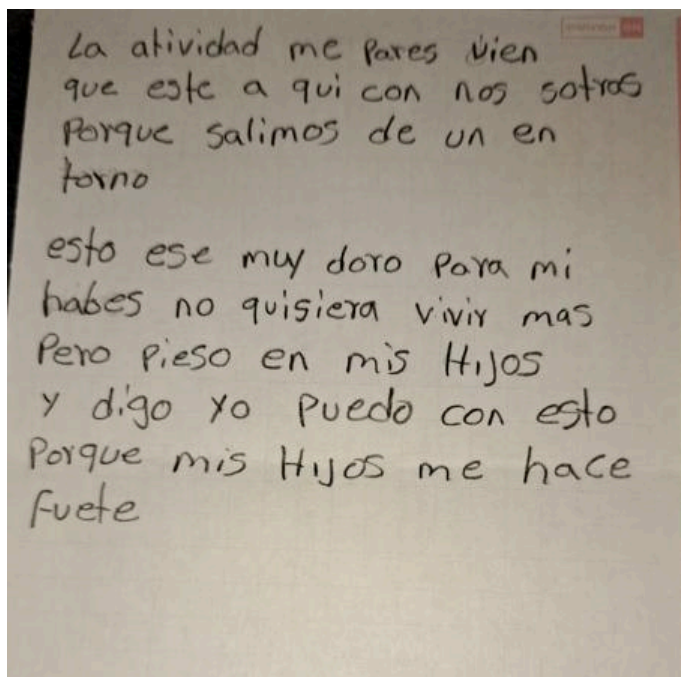 La atividad me Pares vien
que este a qui con nos sotros
Porque salimos de un en
torno
esto ese muy doro Para mi
habes no quisiera vivir mas
Pero Pieso en mis Hijos
y digo yo Puedo con esto
Porque mis Hijos me hace
fuete